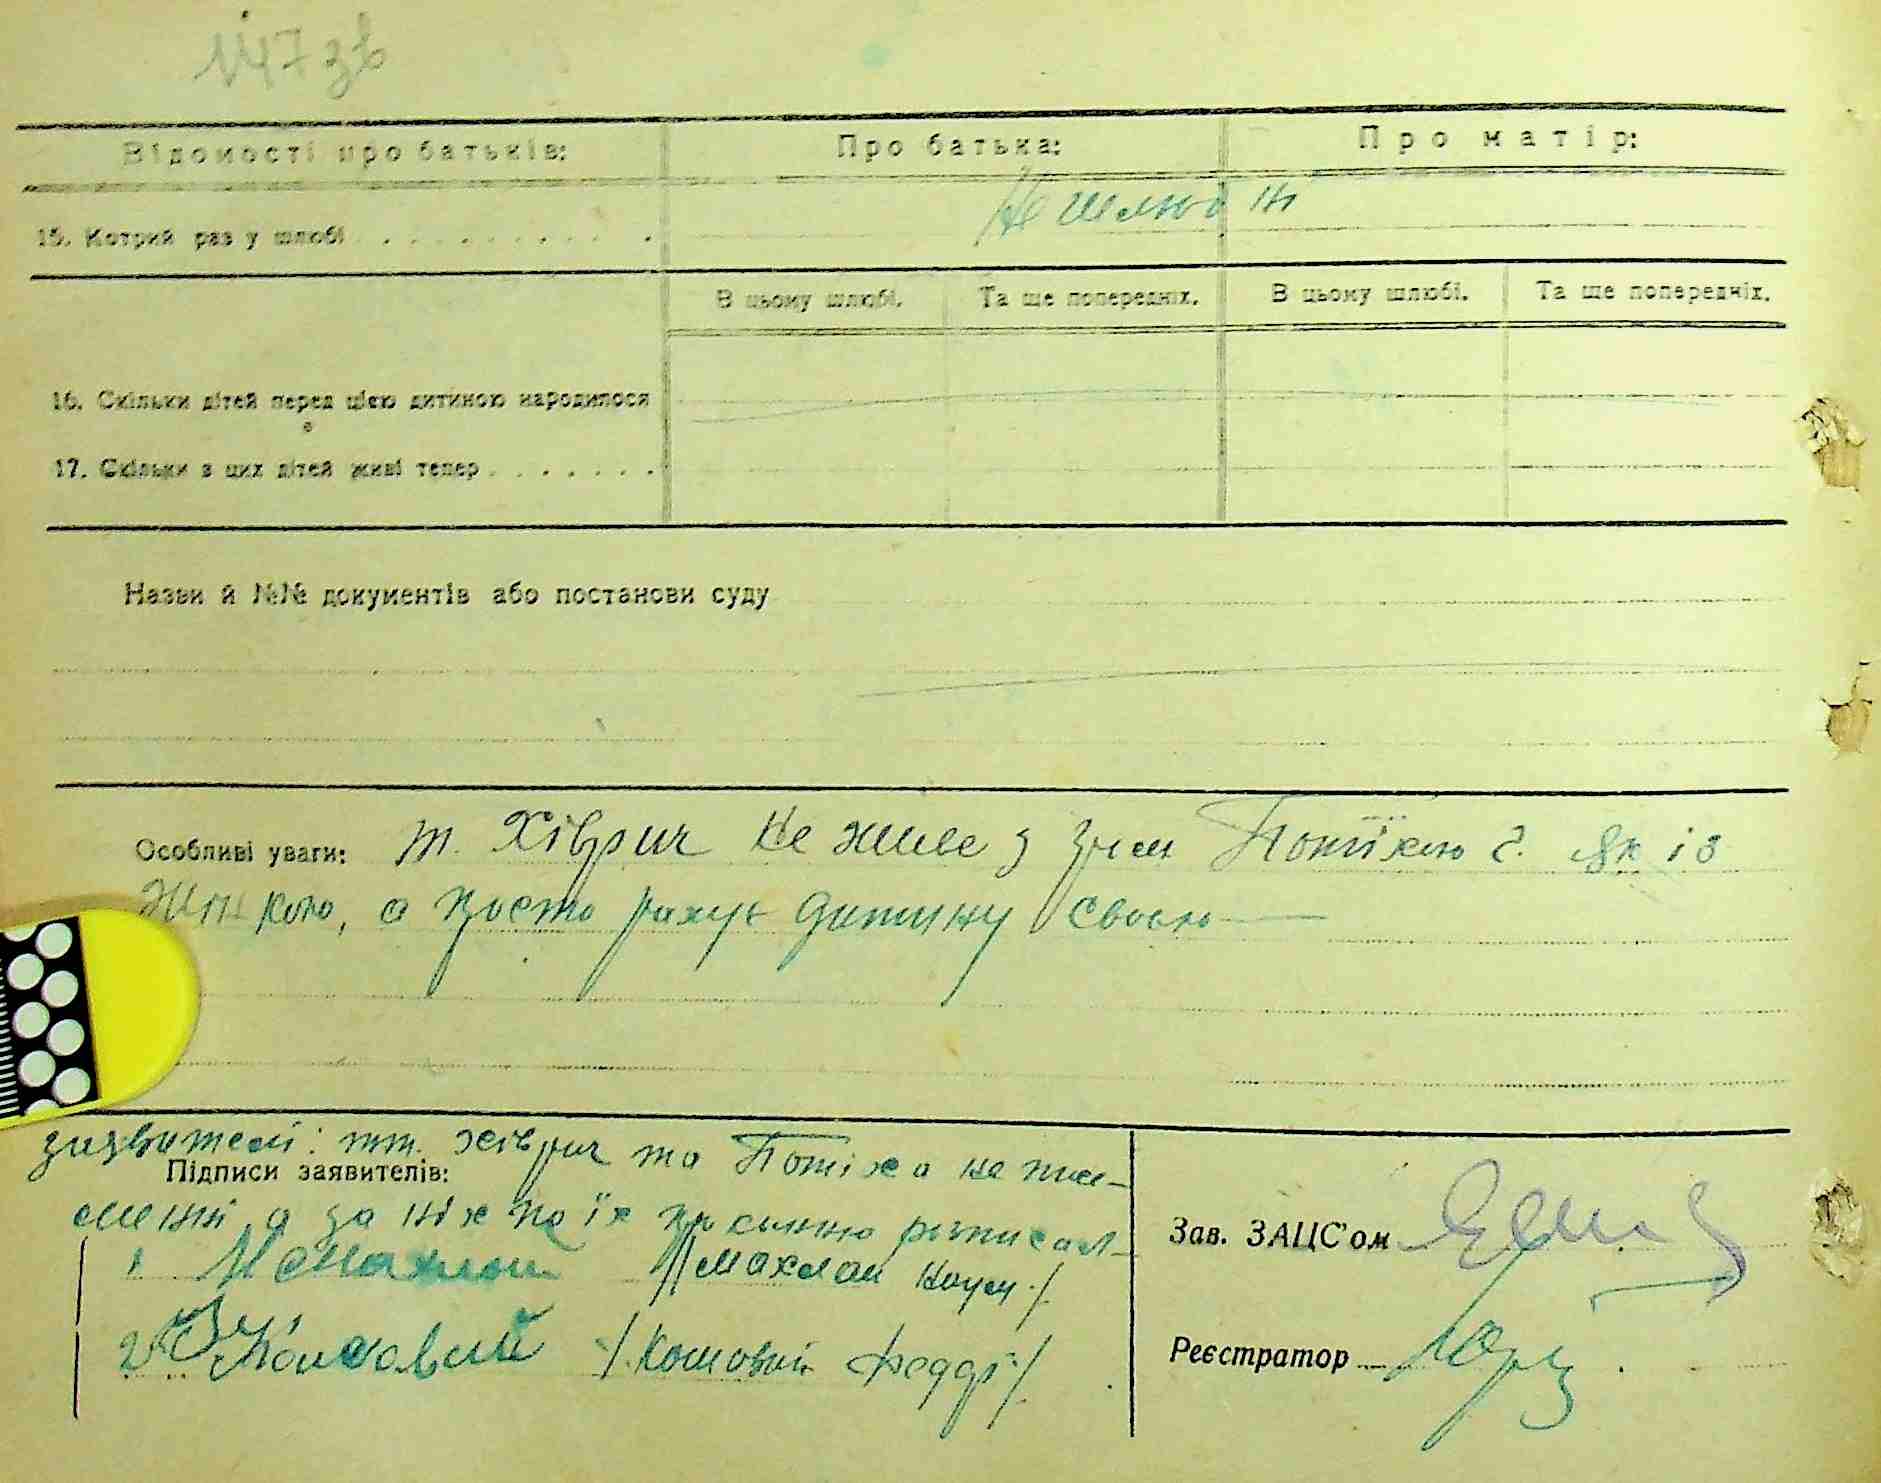 147 зв
Відомості про батьків: Про батька: Про матір:
Не шлюб ні
15. Котрий раз у шлюбі
В цьому шлюбі. Та ще попередніх. В цьому шлюбі. Та ще попередніх.
16. Скільки дітей перед цією дитиною народилося
17. Скільки з цих дітей живі тепер
Назви й №№ документів або постанови суду
Особливі уваги: т. Хіврич не живе з гр-ми як із
Жінкою, а просто рахує дитину своєю
заявителі: тт. Хіврич та Потіха не пись-
Підписи заявителів:
менні а за них по їх проханню розписал-
Зав. ЗАЦС'ом
2 /Кошовий Федір/
Реєстратор